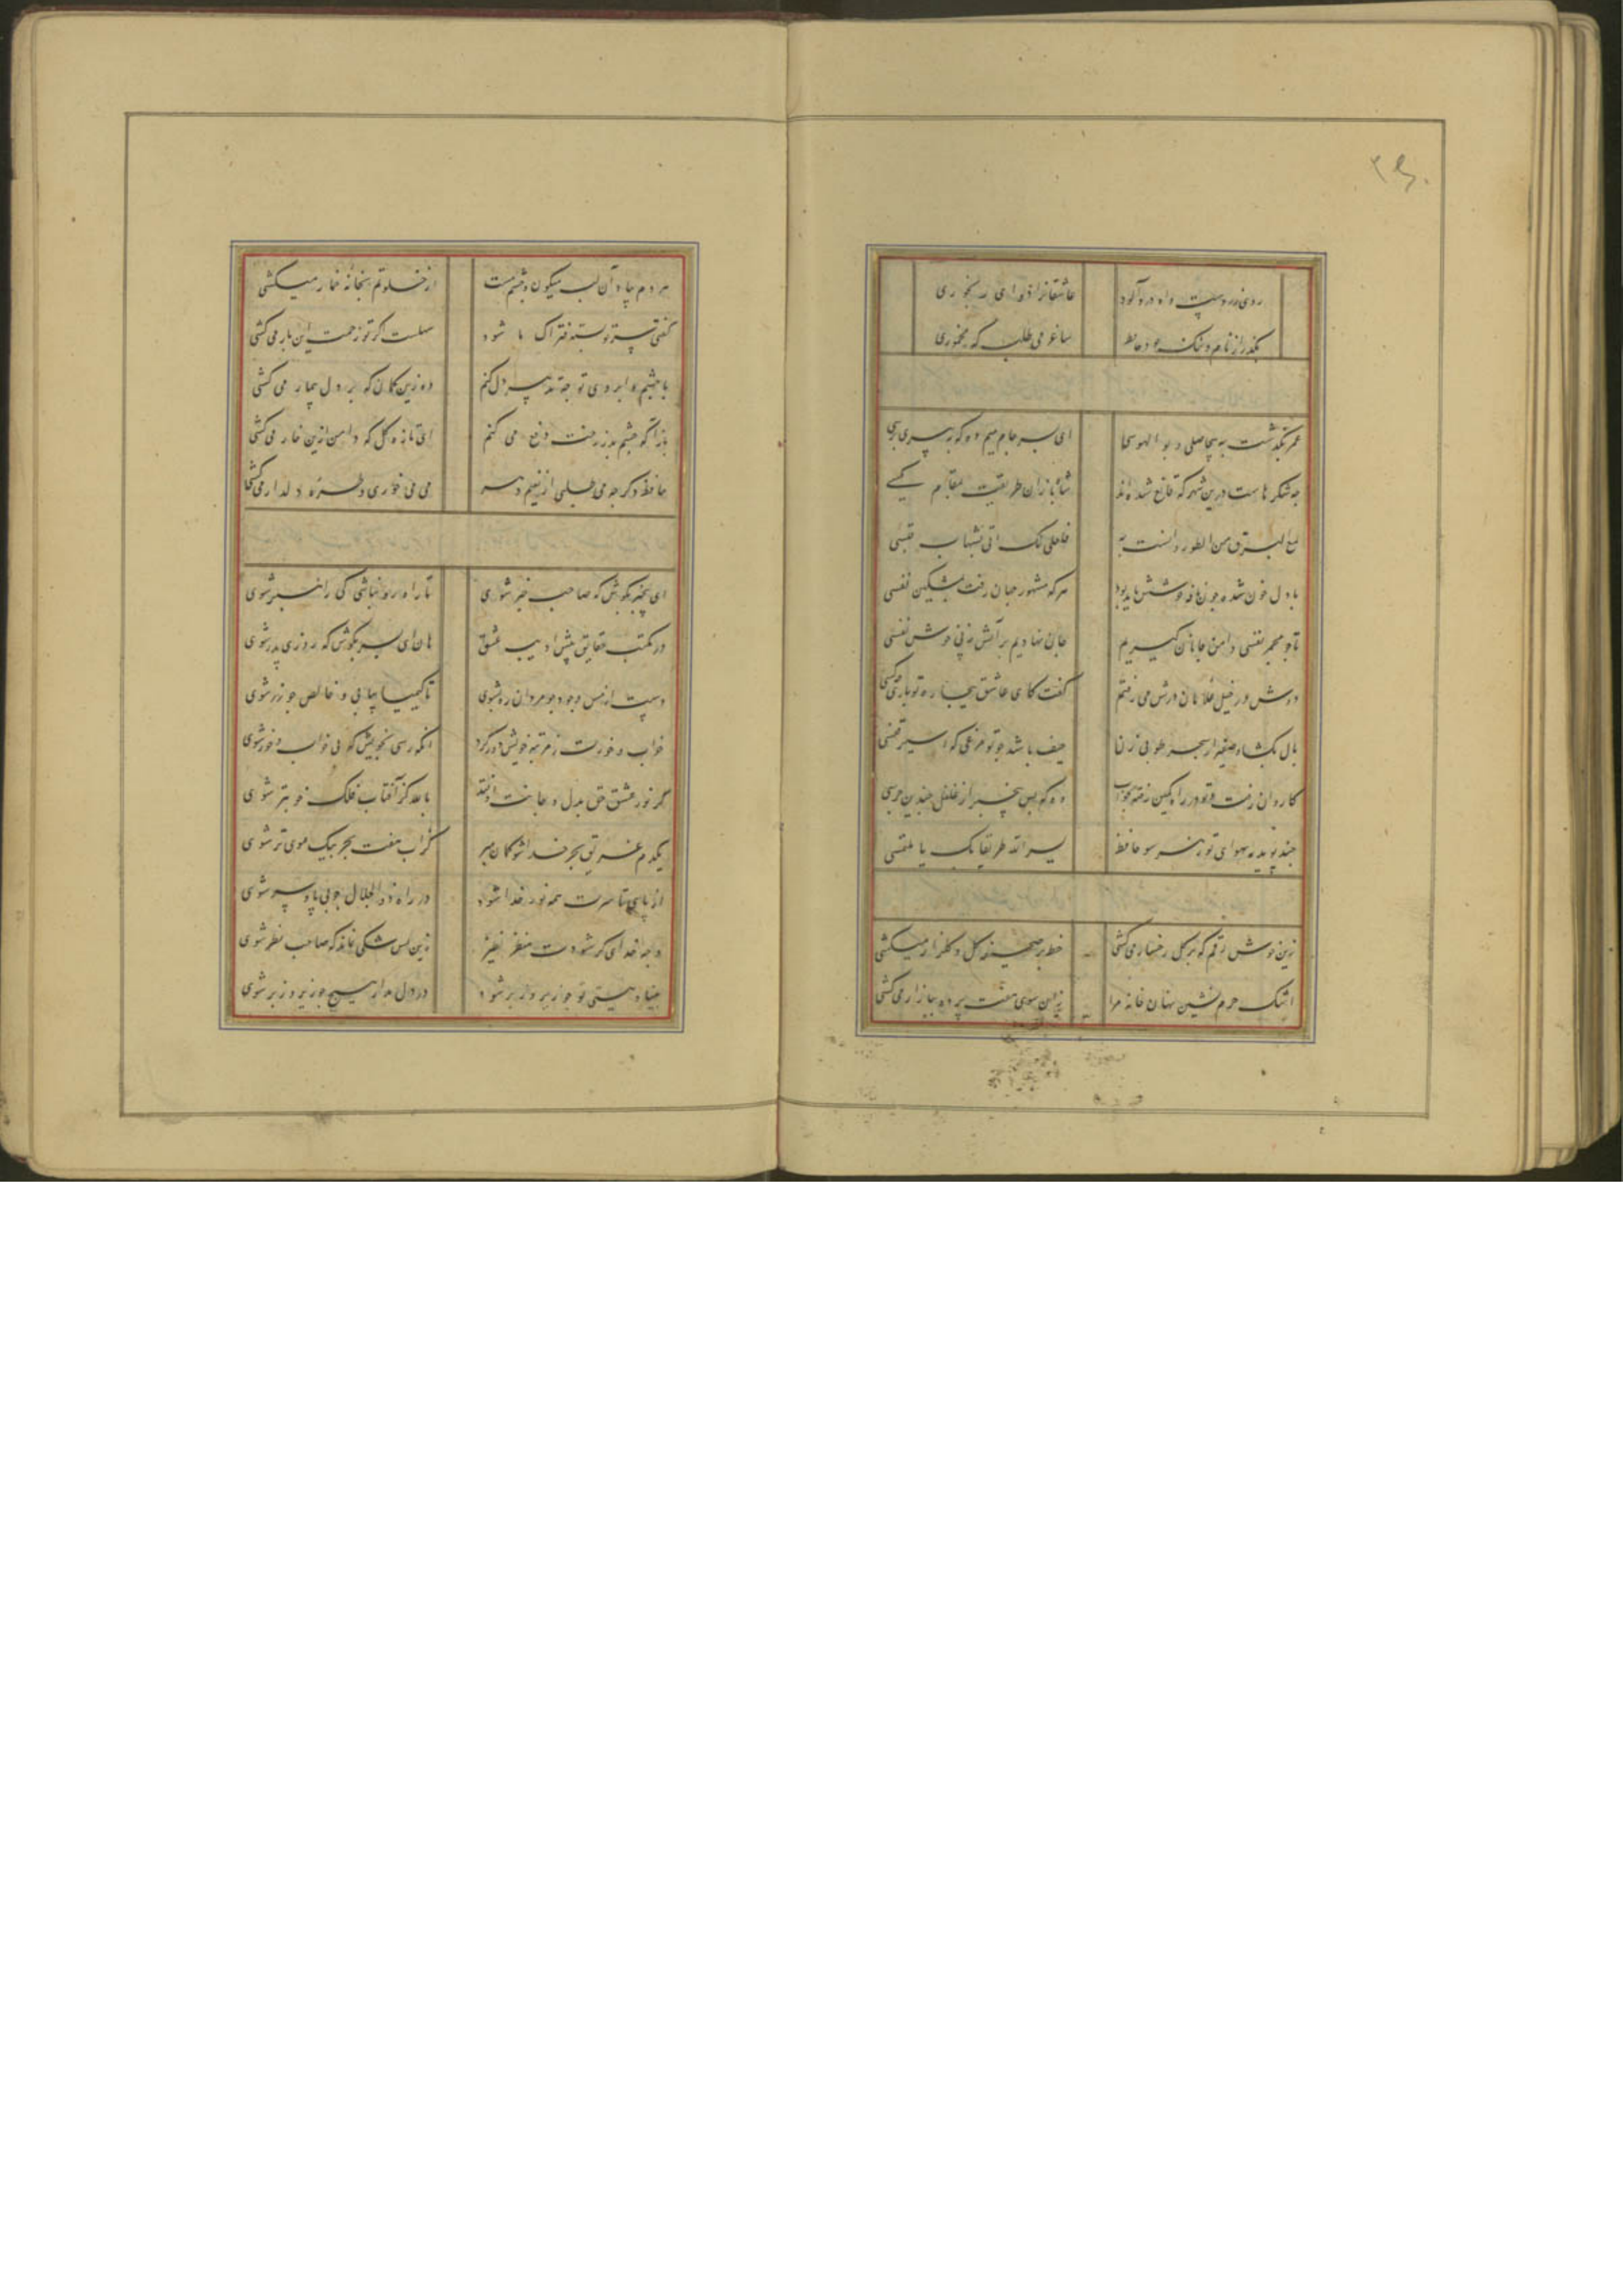 ۲۶۰
روی زردست و آه دردآلود عاشقانرا دوای رنجوری
بگذر از نام و ننک خود حافظ ساغر می طلب که مخموری
عمر بگذشت به بیحاصلی و بوالهوسی ای پسر جام میم ده که به پیری برسی
چه شکرهاست درین شهر که قانع شده‌اند شاهبازان طریقت بمقام مکسی
لمع البرق من الطور و آنست به فلعلی لک آتی بشهاب قبسی
با دل خون شده چون نافه خوشش باید بود هر که مشهور جهان رفت بمشکین نفسی
تا چو مجمر نفسی دامن جانان کیریم جان نهادیم بر آتش ز پی خوش نفسی
دوش در خیل غلامان درش می رفتم کفت کای عاشق بیچاره تو باری چه کسی
بال بکشا و صفیر از شجر طوبی زن حیف باشد چو تو مرغی که اسیر قفسی
کاروان رفت و تو در راه کمین رفته بخواب وه که بس بیخبر از غلغل چندین جرسی
چند پوید بهوای تو ز هر سو حافظ یسر الله طریقا بک یا ملتمسی
زین خوش رقم که بر کل رخسار می کشی خط بر صحیفه کل و کلزار میکشی
اشک حرم نشین نهان خانه مرا زان سوی هفت پرده ببازار می کشی
هر دم بیاد آن لب میکون و چشم مست از خلوتم بخانه خمار میکشی
کفتی سر تو بسته فتراک ما شود سهلست اکر تو زحمت این بار می کشی
با چشم و ابروی تو چه تدبیر دل کنم وه زین کمان که بر دل بیمار می کشی
بازآ که چشم بد ز رخت دفع می کنم ای تازه کل که دامن ازین خار می کشی
حافظ دکر چه می طلبی از نعیم دهر می می خوری و طره دلدار می کشی
ای بیخبر بکوش که صاحب خبر شوی تا راه رو نباشی کی راهبر شوی
در مکتب حقایق پیش ادیب عشق هان ای پسر بکوش که روزی پدر شوی
دست از مس وجود چو مردان ره بشوی تا کیمیا بیابی و خالص چو زر شوی
خواب و خورت ز مرتبه خویش دور کرد آنکه رسی بخویش که بی خواب و خور شوی
کر نور عشق حق بدل و جانت اوفتد بالله کز آفتاب فلک خوبتر شوی
یکدم غریق بحر خدا شو کمان مبر کز آب هفت بحر بیک موی تر شوی
از پای تا سرت همه نور خدا شود در راه ذوالجلال چو بی پا و سر شوی
وجه خدای کر شودت منظر نظر زین پس شکی نماند که صاحب نظر شوی
بنیاد هستی تو چو زیر و زبر شود در دل مدار هیچ چو زیر و زبر شوی